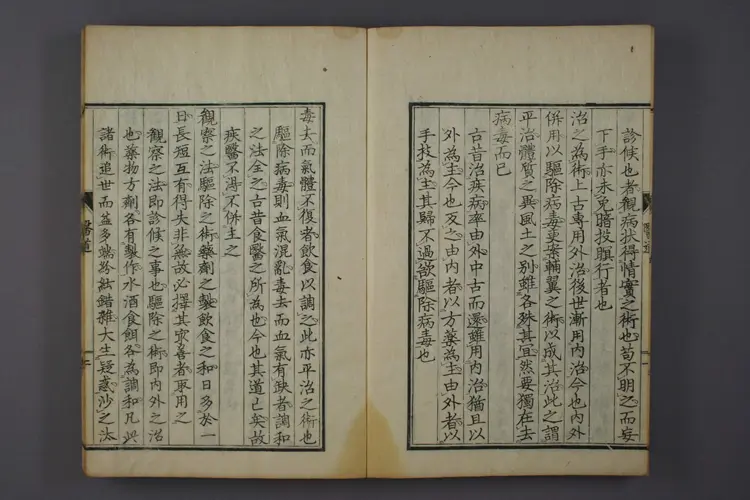 診候也者觀病狀得情實之術也苟不明之而妄
下手亦未免暗投瞑行者也
治之為術上古專用外治後世漸用內治今也內外
併用以驅除病毒更案輔翼之術以成其治此之謂
平治體質之異風土之別雖各殊其宜然要獨在去
病毒而已
古昔治疾病率由外中古而還雖用內治猶且以
外為主今也反之由內者以方藥為主由外者以
手技為主其歸不過欲驅除病毒也
毒去而氣體不復者飲食以調之此亦平治之術也
驅除病毒則血氣混亂毒去而血氣有缺者調和
之法全之古昔食醫之所為也今也其道已矣故
疾醫不得不併主之
觀察之法驅除之術藥劑之製飲食之和日多於一
日長短互有得失非無故必擇其最善者取用之
觀察之法即診候之事也驅除之術即內外之治
也藥物方劑各有製作水酒食餌各為調和凡此
諸術追世而益多端紛紜錯雜大生疑惑沙之汰
醫道